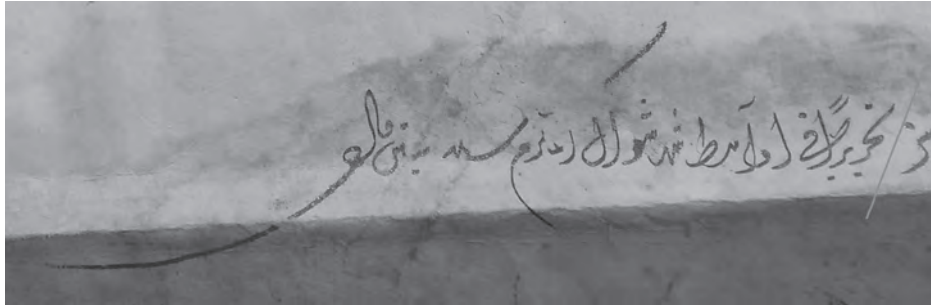 تحريرًا في اواسط شهر شوال المكرم سنه والف